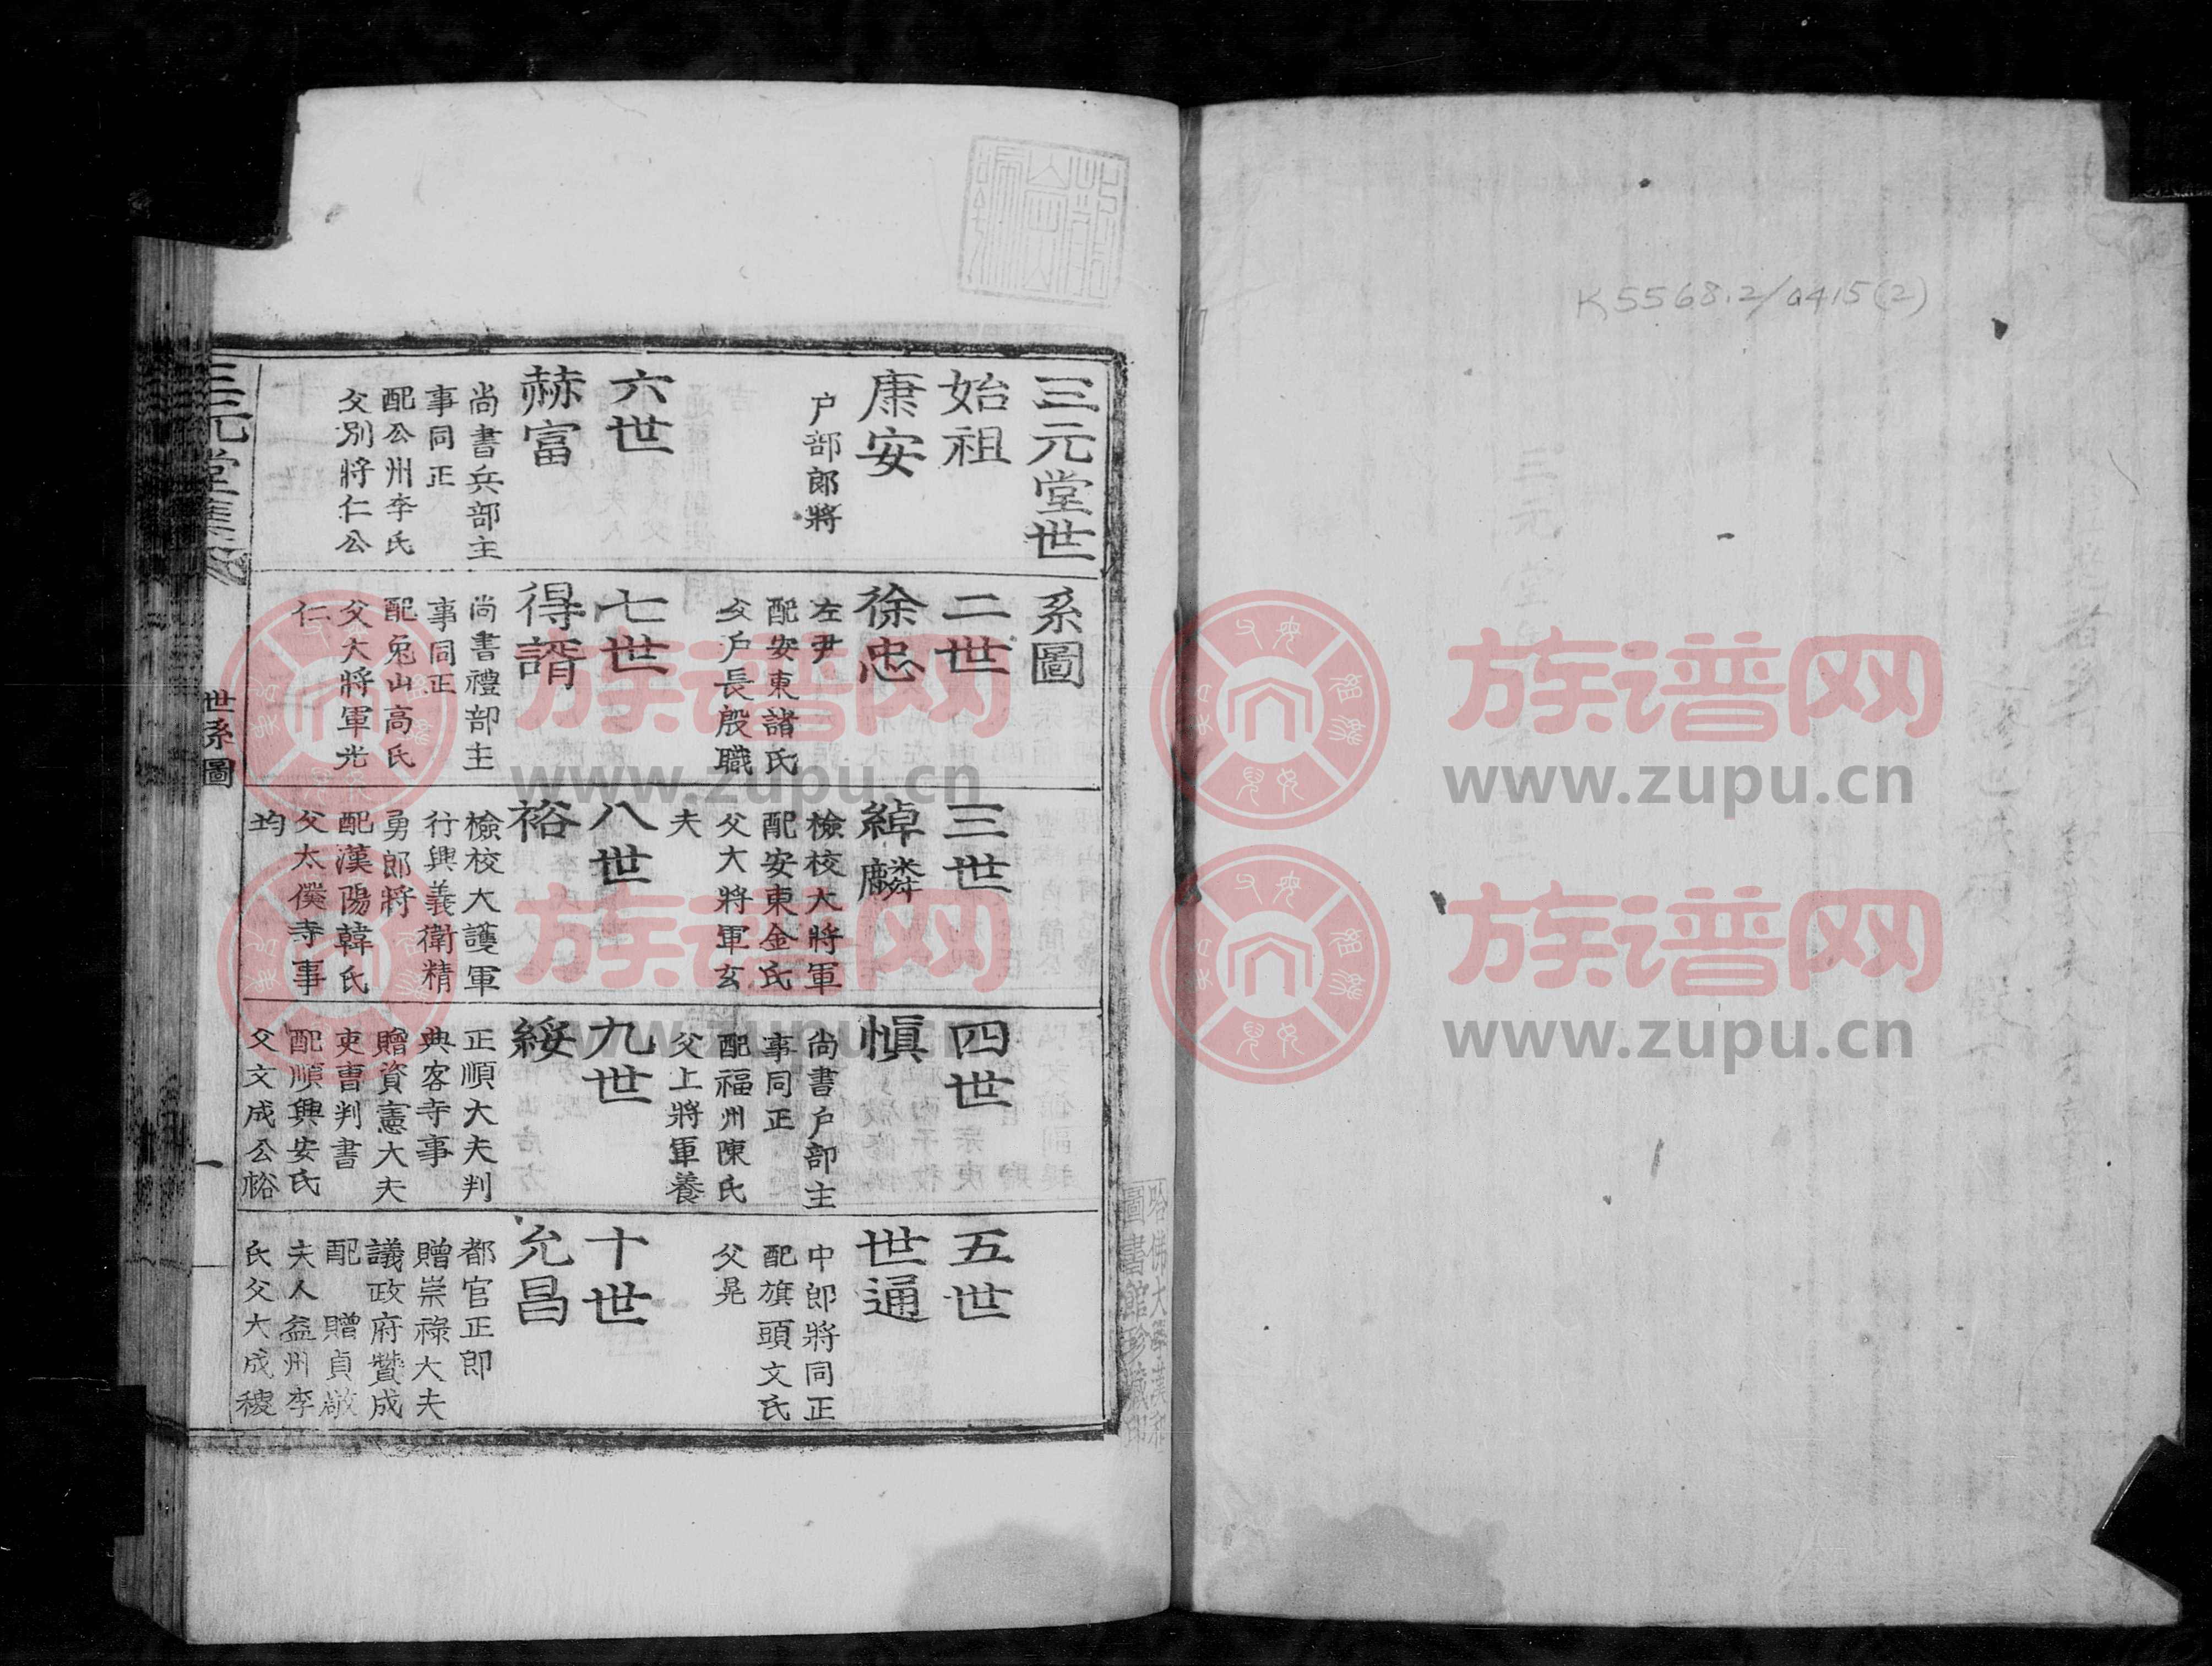 K5568.2/4415(2)
三元堂世系圖
始祖
康安
户部郎將
二世
徐忠
左尹
配安東諸氏
父户長殷職
三世
綽麟
檢校大將軍
配安東金氏
父大將軍玄
夫
四世
愼
尚書户部主
事同正
配福州陳氏
父上將軍養
五世
世通
中郎將同正
配旗頭文氏
父晃
六世
赫富
尚書兵部主
事同正
配公州李氏
父別將仁公
七世
得諝
尚書禮部主
事同正
配兔山高氏
父大將軍光
仁
八世
裕
檢校大護軍
行興義衛精
勇郎將
配漢陽韓氏
父太僕寺事
均
九世
綏
正順大夫判
典客寺事
贈資憲大夫
吏曹判書
配順興安氏
父文成公裕
十世
允昌
都官正郎
贈崇祿大夫
議政府贊成
配 贈貞敬
夫人益州李
氏父大成稷
三元堂集
世系圖
一
哈佛大學漢和
圖書館珍藏印
族谱网
www.zupu.cn
族谱网
www.zupu.cn
族谱网
www.zupu.cn
族谱网
www.zupu.cn